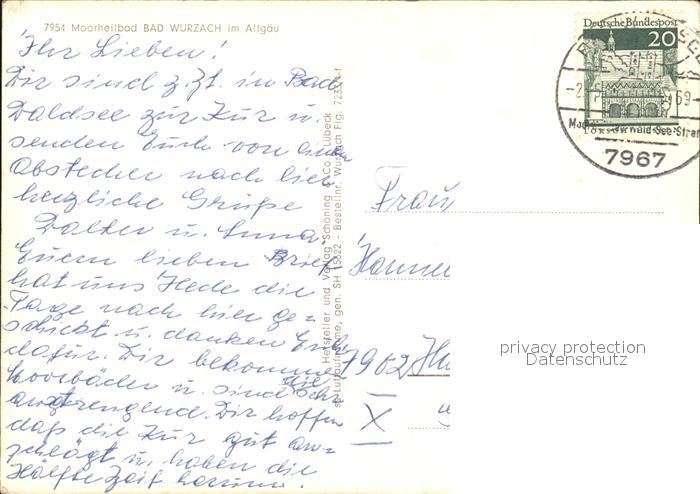 7954 Moorheilbad BAD WURZACH im Allgäu
Ihr Lieben!
Wir sind z. Zt. in Bad
Waldsee zur Kur u.
senden Euch von einem
Abstecher nach hier
herzliche Grüße
Walter u. Anna.
Euern lieben Brief
hat uns Hede die
Tage nach hier ge-
schickt u. danken Euch
dafür. Wir bekommen
Moorbäder u. sind die sehr
anstrengend. Wir hoffen
daß die Kur gut an-
schlägt u. haben die
Hälfte Zeit herum.
Hersteller und Verlag Schöning & Co., Lübeck
Luftaufnahme, gen. SH 15622 - Bestellnr. Wurzach Flg. 72334
Deutsche Bundespost
20
69
7967
Frau
Hanne
7902
X
privacy protection
Datenschutz